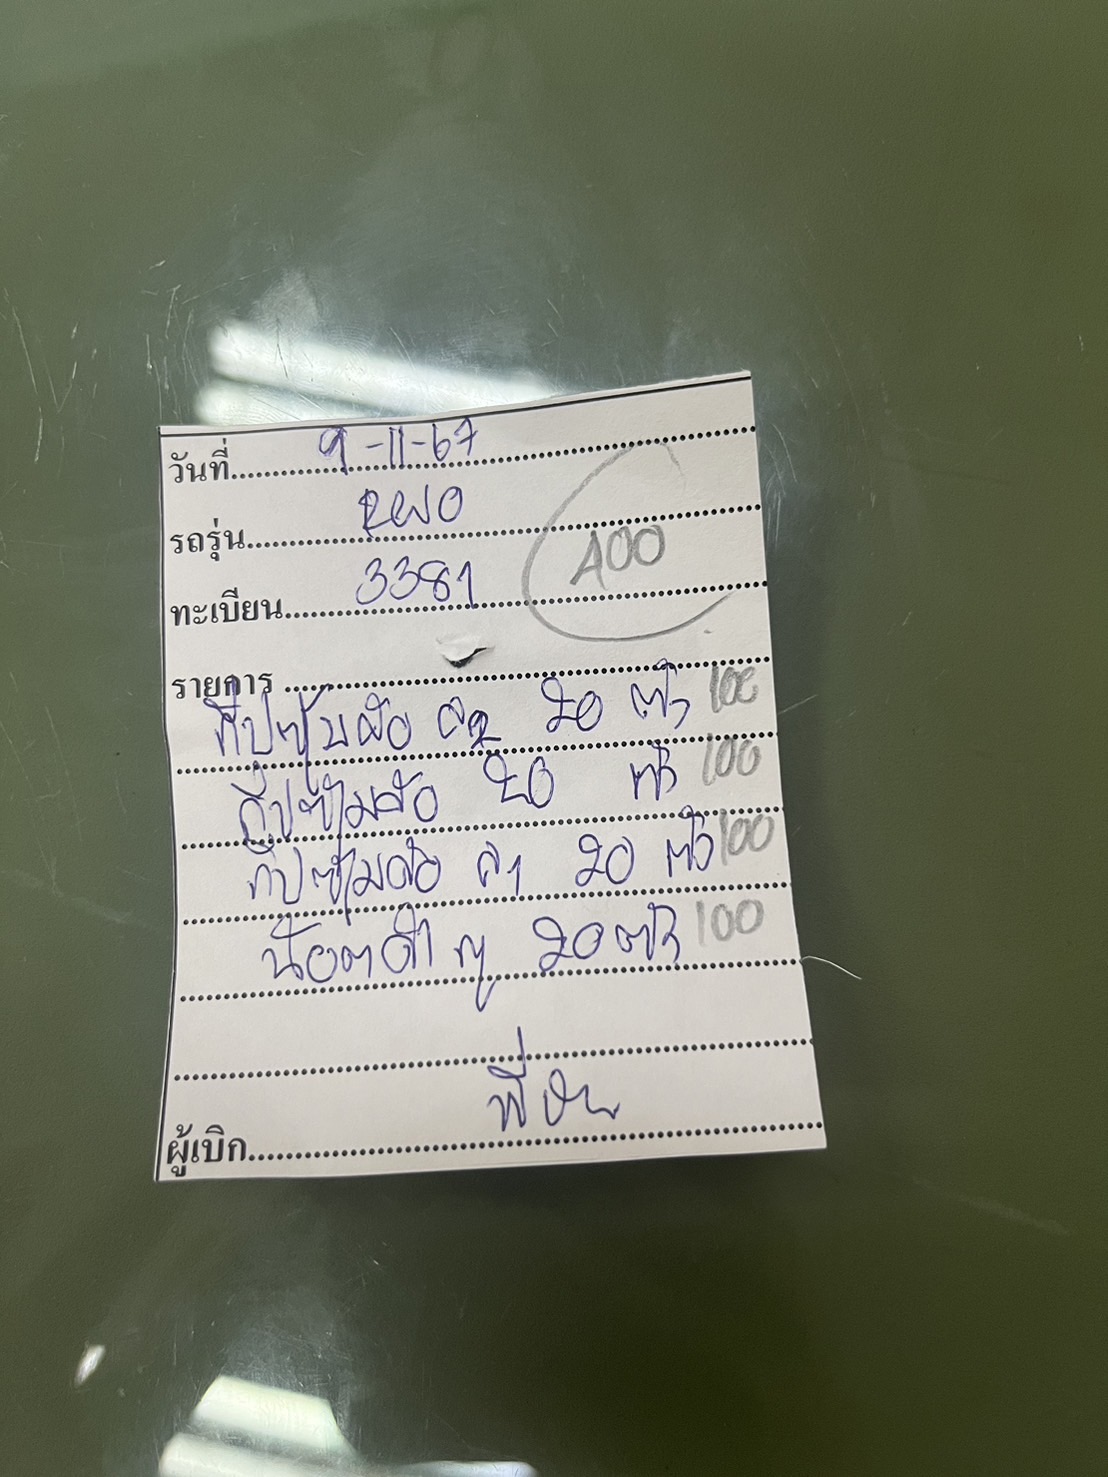 วันที่ 9-11-67
รถรุ่น REVO
400
ทะเบียน 3381
รายการ
กิ๊ปซุ้มล้อ 20 ตัว 100
กิ๊ปซุ้มล้อ 20 ตัว 100
กิ๊ปซุ้มล้อ 20 ตัว 100
น๊อตดำ 20 ตัว 100
ผู้เบิก พี่